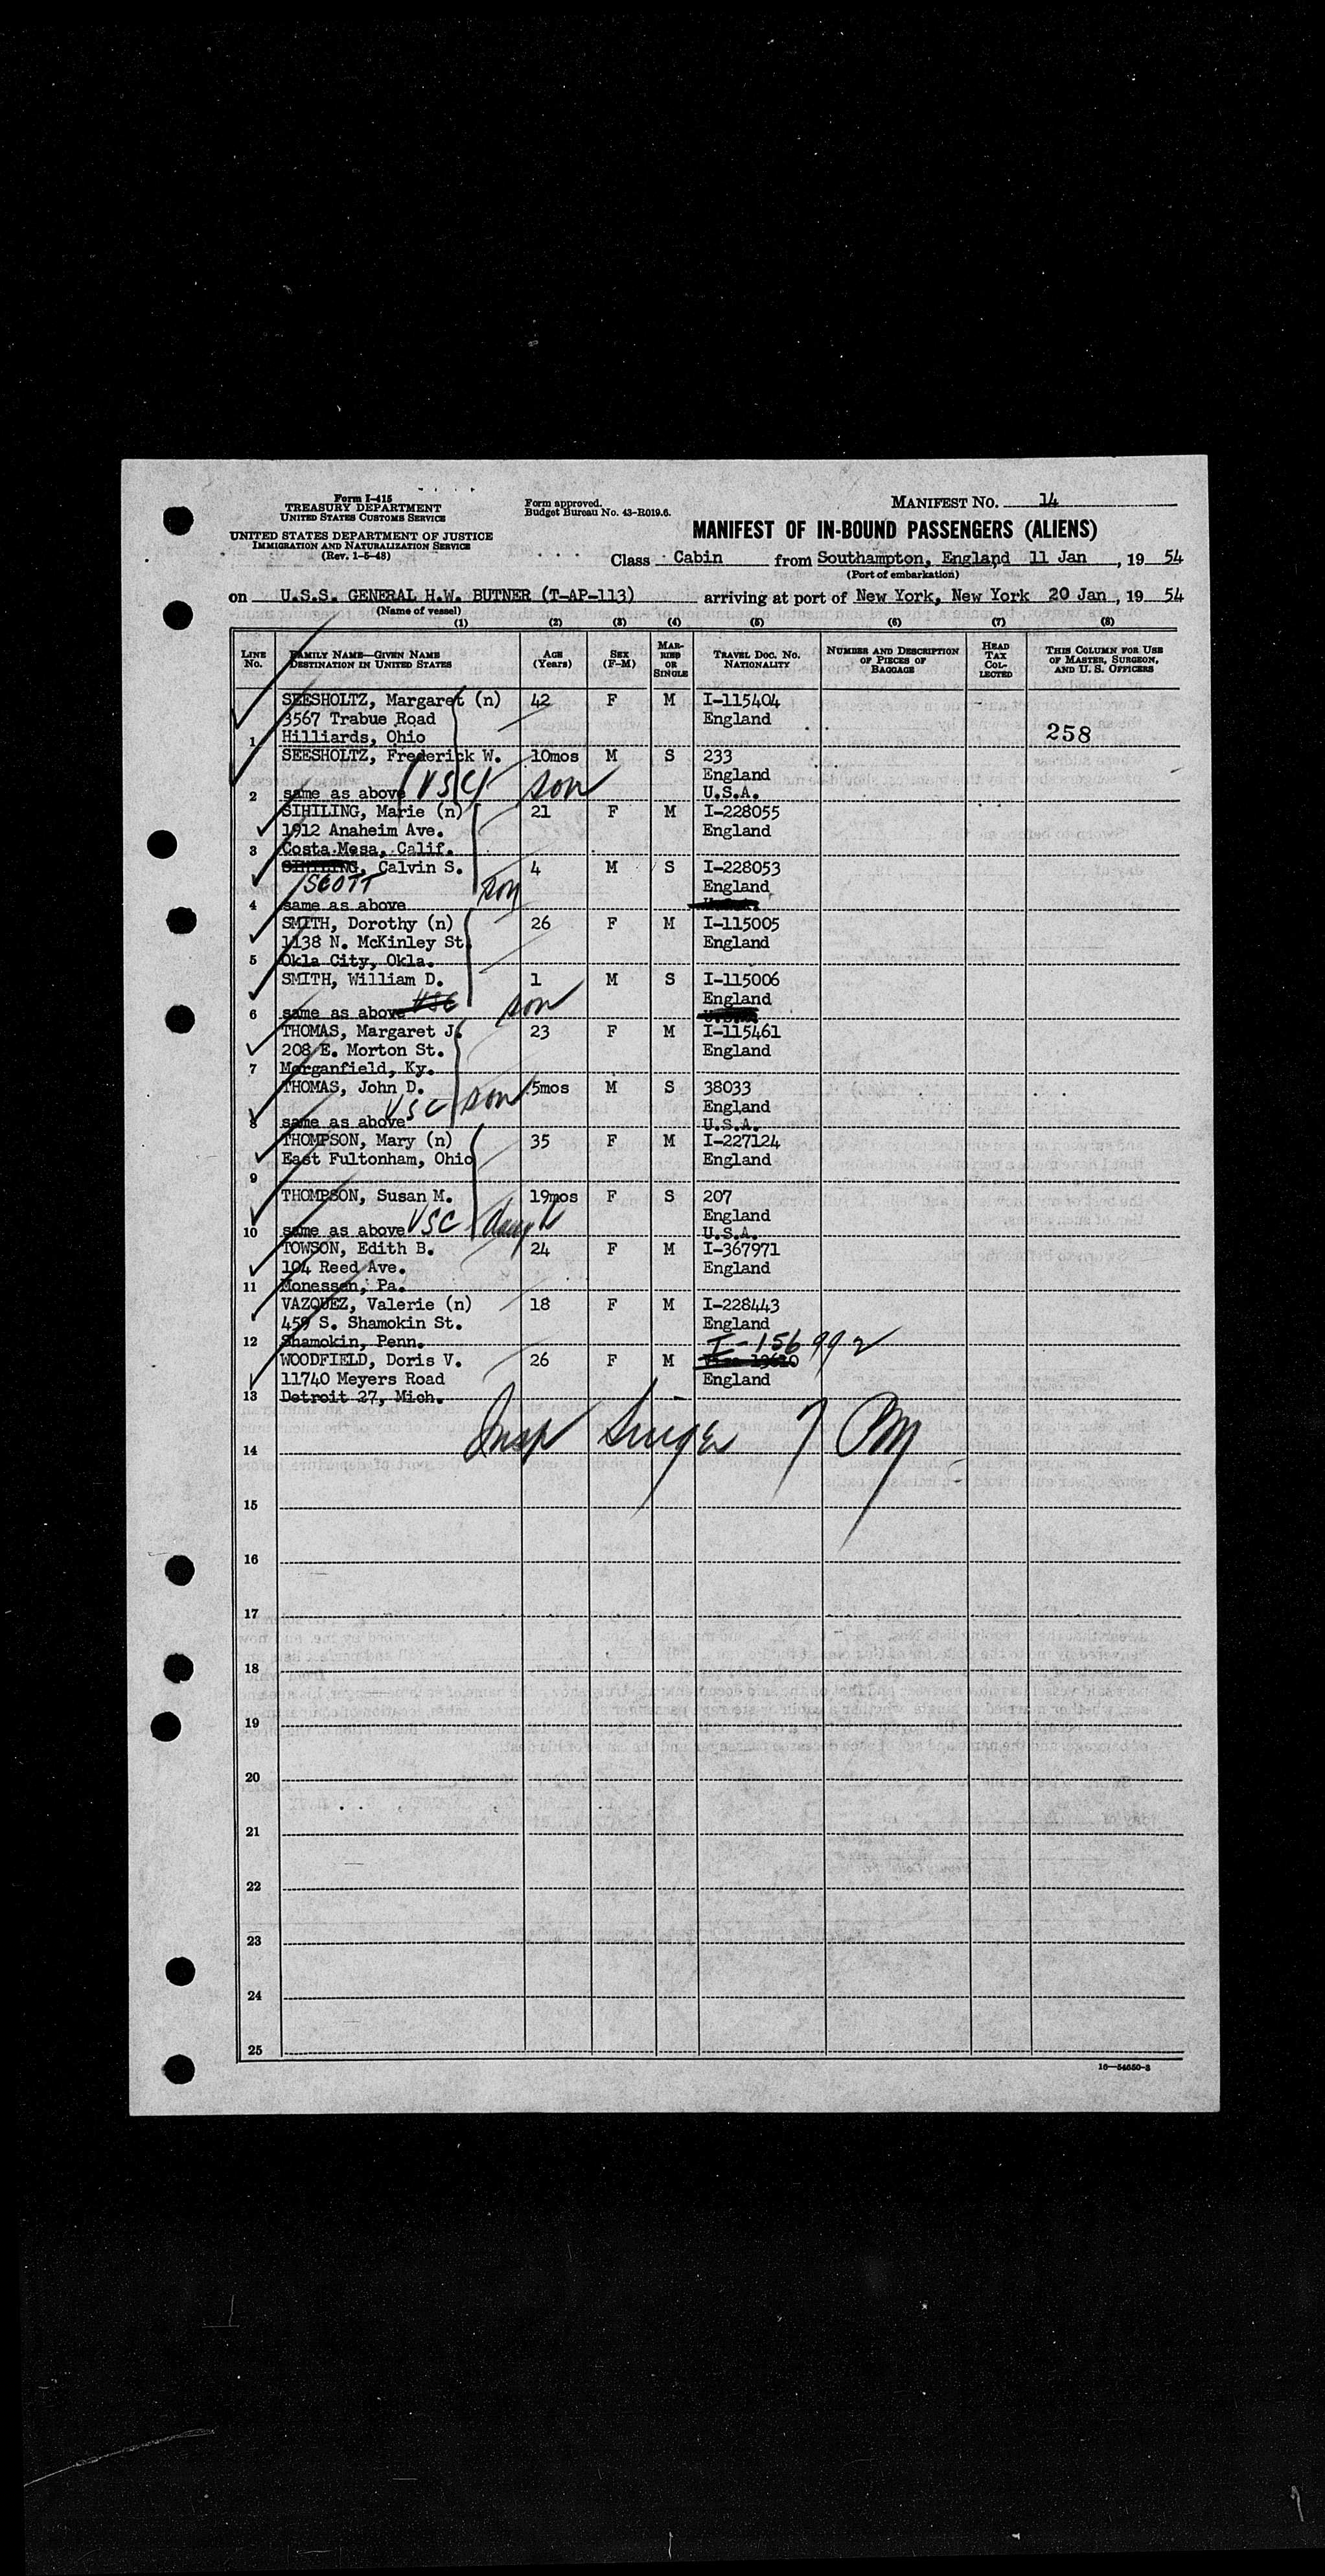 Form I-415
TREASURY DEPARTMENT
UNITED STATES CUSTOMS SERVICE
UNITED STATES DEPARTMENT OF JUSTICE
IMMIGRATION AND NATURALIZATION SERVICE
(Rev. 1-5-48)
Form approved.
Budget Bureau No. 43-R019.6.
MANIFEST NO. 14
MANIFEST OF IN-BOUND PASSENGERS (ALIENS)
Class Cabin from Southampton, England 11 Jan, 1954
(Port of embarkation)
on U.S.S. GENERAL H.W. BUTNER (T-AP-113) arriving at port of New York, New York 20 Jan, 1954
(Name of vessel)
(1) (2) (3) (4) (5) (6) (7) (8)
LINE No. FAMILY NAME—GIVEN NAME DESTINATION IN UNITED STATES AGE (Years) SEX (F-M) MARRIED OR SINGLE TRAVEL DOC. NO. NATIONALITY NUMBER AND DESCRIPTION OF PIECES OF BAGGAGE HEAD TAX COLLECTED THIS COLUMN FOR USE OF MASTER, SURGEON, AND U. S. OFFICERS
SEESHOLTZ, Margaret (n) 42 F M I-115404
3567 Trabue Road England
1 Hilliards, Ohio 258
SEESHOLTZ, Frederick W. 10mos M S 233
USC son England
2 same as above U.S.A.
SIHILING, Marie (n) 21 F M I-228055
1912 Anaheim Ave. England
3 Costa Mesa, Calif.
SIHILING, Calvin S. 4 M S I-228053
SCOTT son England
4 same as above
SMITH, Dorothy (n) 26 F M I-115005
1138 N. McKinley St. England
5 Okla City, Okla.
SMITH, William D. 1 M S I-115006
USC son England
6 same as above
THOMAS, Margaret J. 23 F M I-115461
208 E. Morton St. England
7 Morganfield, Ky.
THOMAS, John D. 5mos M S 38033
USC son England
8 same as above U.S.A.
THOMPSON, Mary (n) 35 F M I-227124
East Fultonham, Ohio England
9
THOMPSON, Susan M. 19mos F S 207
England
10 same as above USC daugh U.S.A.
TOWSON, Edith B. 24 F M I-367971
104 Reed Ave. England
11 Monessen, Pa.
VAZQUEZ, Valerie (n) 18 F M I-228443
459 S. Shamokin St. England
12 Shamokin, Penn. I-156992
WOODFIELD, Doris V. 26 F M
11740 Meyers Road England
13 Detroit 27, Mich.
Insp
14
15
16
17
18
19
20
21
22
23
24
25
16—54650-3